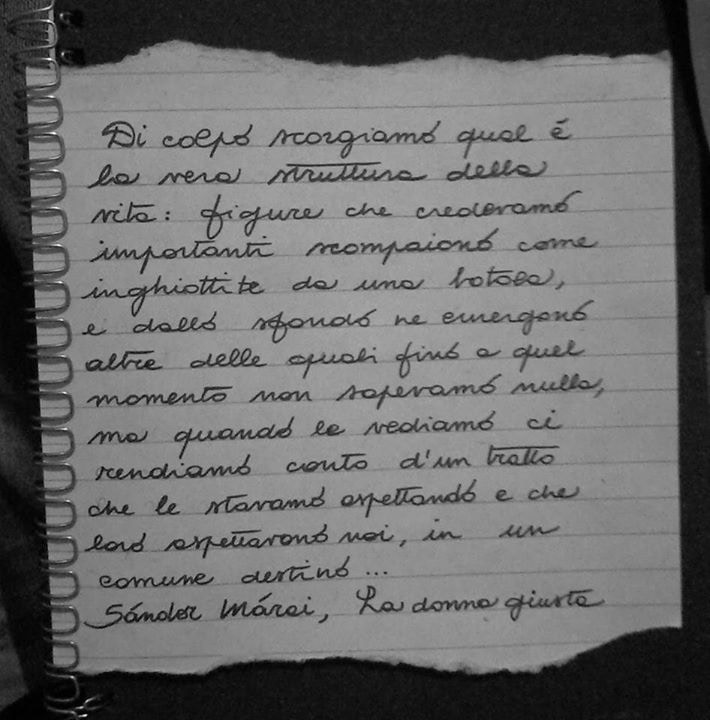 Di colpo scorgiamo qual è
la vera struttura della
vita: figure che credevamo
importanti scompaiono come
inghiottite da una botola,
e dallo sfondo ne emergono
altre delle quali fino a quel
momento non sapevamo nulla,
ma quando le vediamo ci
rendiamo conto d'un tratto
che le stavamo aspettando e che
loro aspettavano noi, in un
comune destino...
Sándor Márai, La donna giusta